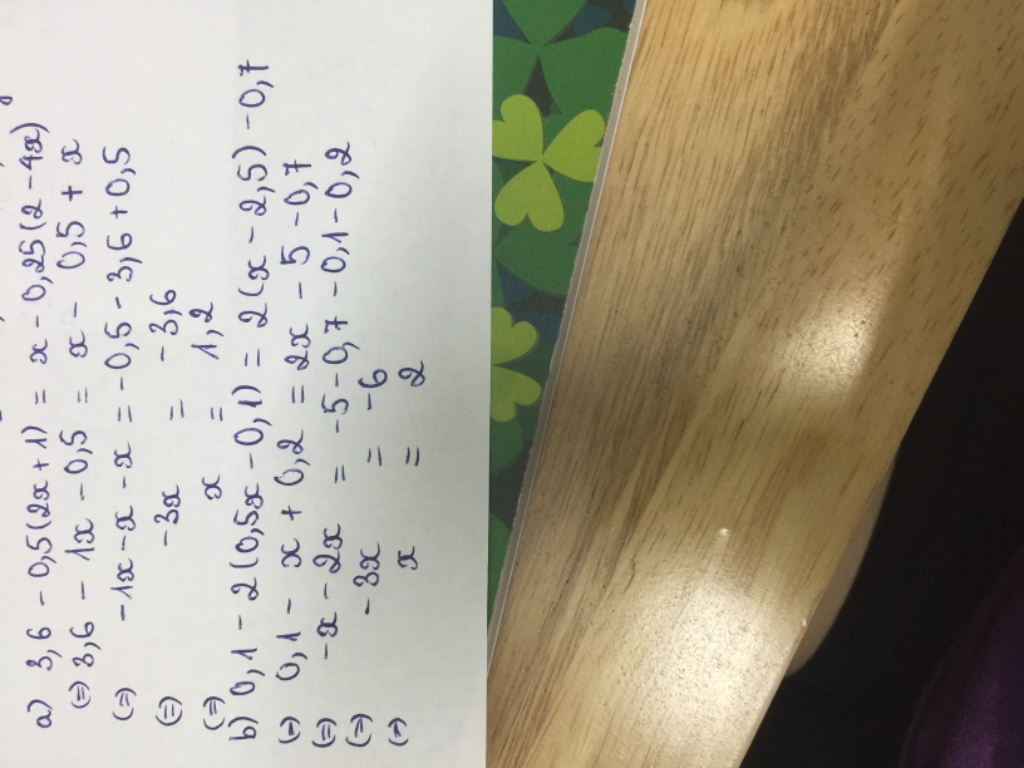 a) 3,6 - 0,5(2x+1) = x - 0,25(2-4x)
(=) 3,6 - 1x - 0,5 = x - 0,5 + x
(=) -1x - x - x = -0,5 - 3,6 + 0,5
(=) -3x = -3,6
(=) x = 1,2
b) 0,1 - 2(0,5x - 0,1) = 2(x - 2,5) - 0,7
(=) 0,1 - x + 0,2 = 2x - 5 - 0,7
(=) -x - 2x = -5 - 0,7 - 0,1 - 0,2
(=) -3x = -6
(=) x = 2